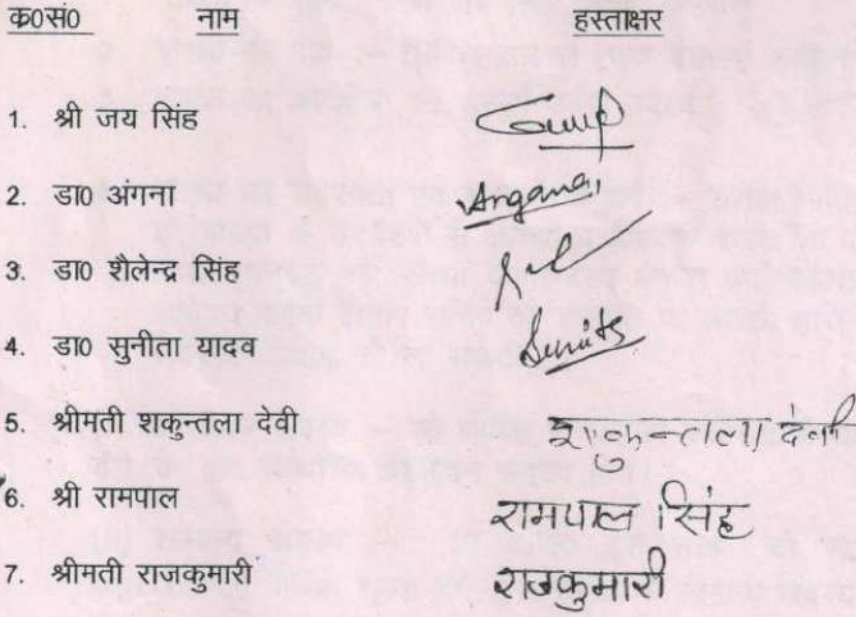 क0सं0 नाम हस्ताक्षर
1. श्री जय सिंह
2. डा0 अंगना Angana
3. डा0 शैलेन्द्र सिंह
4. डा0 सुनीता यादव Sunita
5. श्रीमती शकुन्तला देवी शकुन्तला देवी
6. श्री रामपाल रामपाल सिंह
7. श्रीमती राजकुमारी राजकुमारी